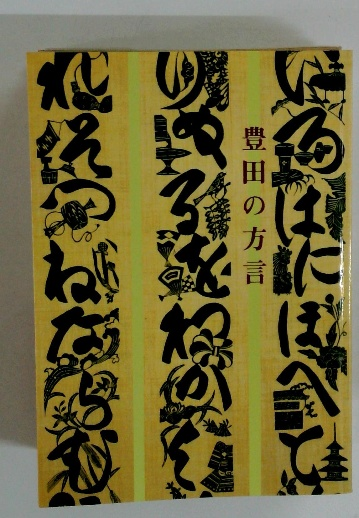 いろはにほへと
豊田の方言
りぬるをわかよ
れそつねならむ